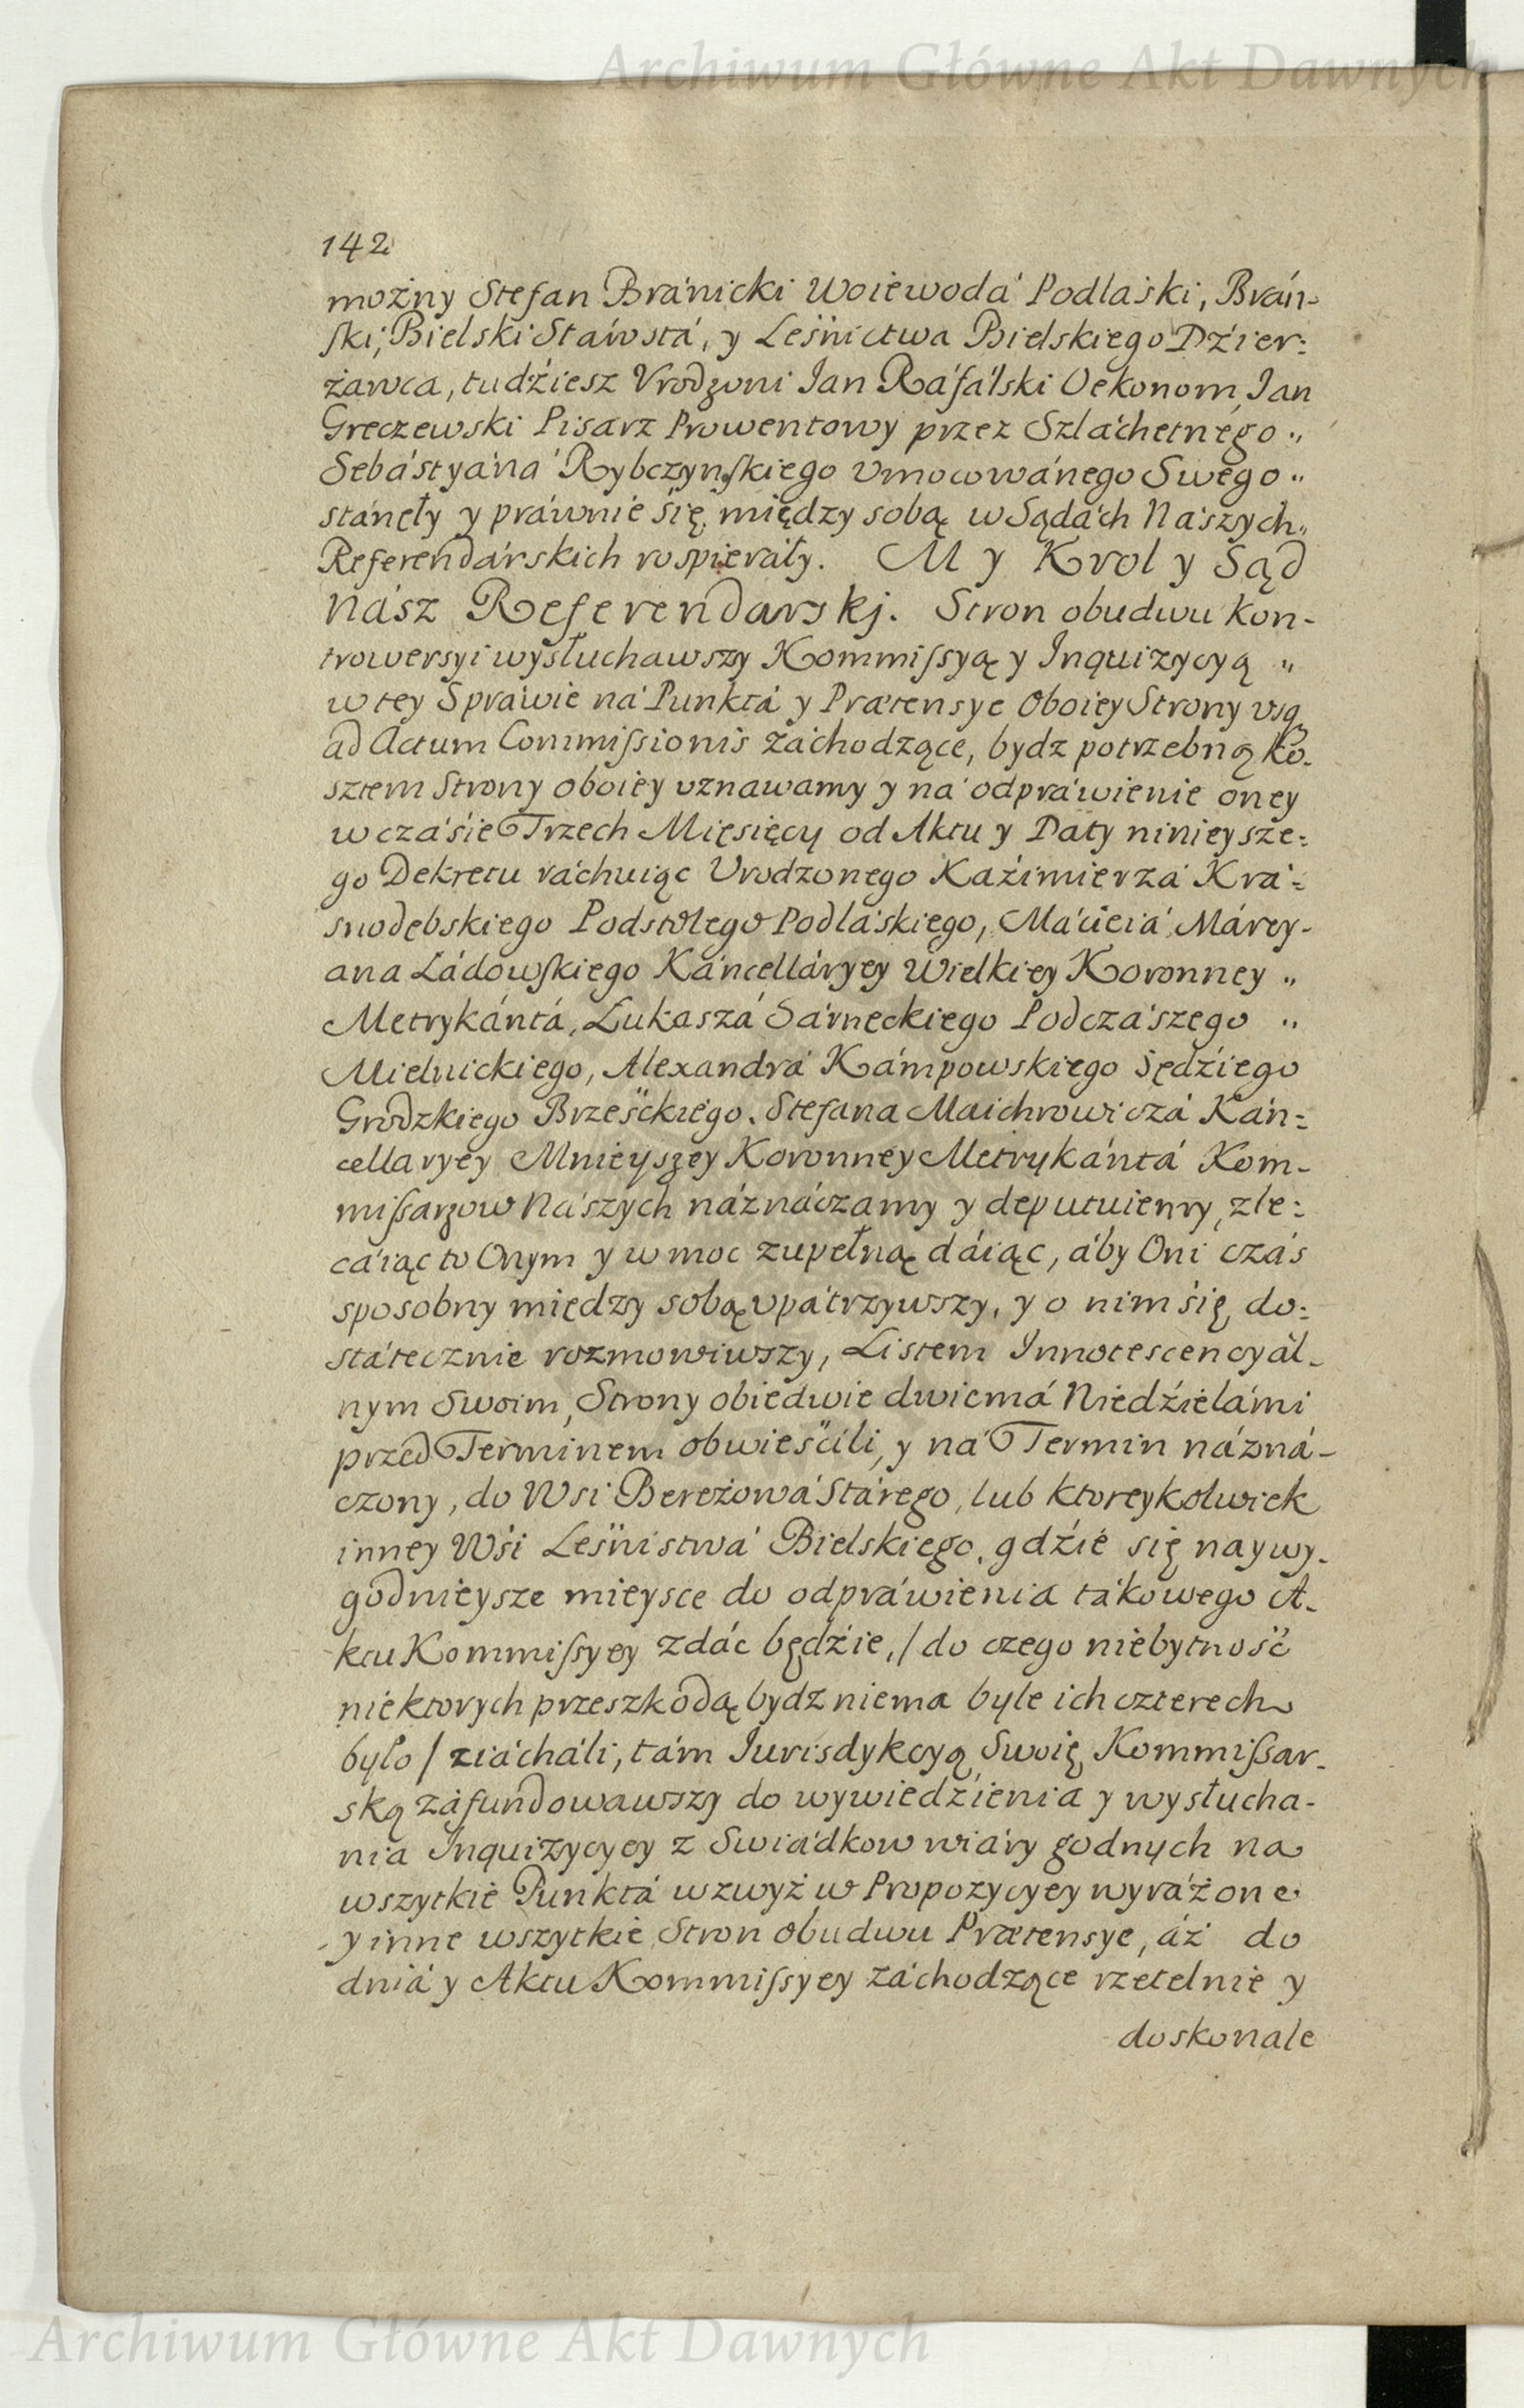 Archiwum Główne Akt Dawnych
142
możny Stefan Bránicki Woiewodá Podláski, Bráń-
ski, Bielski Stárostá, y Leśnictwa Bielskiego Dźier:
żawca, tudźiesz Vrodzoni Ian Ráfálski Oekonom, Ian
Greczewski Pisarz Prowentowy przez Szláchetnego „
Sebástyáná Rybczynskiego vmocowánego Swego „
stánęły y práwnie się między sobą w Sądách Nászych „
Referendárskich rospieráły. My Krol y Sąd
Nász Referendarskj. Stron obudwu kon-
trowersyi wysłuchawszy Kommissyą y Inquizycyą „
w tey Spráwie ná Punktá y Prætensye Oboiey Strony vsq
ad Actum Commissionis záchodzące, bydz potrzebną ko-
sztem Strony oboiey vznawamy y ná odpráwienie oney
w czáśie Trzech Mięsięcy od Aktu y Daty ninieysze:
go Dekretu ráchuiąc Urodzonego Kaźimierzá Krá:
snodębskiego Podstolego Podláskiego, Máćieiá Márcy-
ana Ládowskiego Káncelláryey Wielkiey Koronney „
Metrykántá, Łukaszá Sárneckiego Podczászego „
Mielnickiego, Alexandrá Kámpowskiego Sędźiego
Grodzkiego Brześćkiego, Stefana Maichrowiczá Kán:
cellaryey Mnieyszey Koronney Metrykántá Kom-
missarzow Nászych náznáczamy y deputuiemy, zle:
cáiąc to Onym y w moc zupełną dáiąc, áby Oni czás
sposobny między sobą vpátrzywszy, y o nim się do:
státecznie rozmowiwszy, Listem Innotescencyál-
nym Swoim, Strony obiedwie dwiemá Niedźielámi
przed Terminem obwieśćili, y ná Termin názná-
czony, do Wsi Bereżowá Stárego, lub ktoreykolwiek
inney Wśi Leśnistwá Bielskiego, gdźie się naywy-
godnieysze mieysce do odpráwienia tákowego A-
ktu Kommissyey zdáć będźie, / do czego niebytność
niektorych przeszkodą bydz niema byle ich czterech
było / ziácháli, tám Iurisdykcyą Swoię Kommissar-
ską záfundowawszy do wywiedźienia y wysłucha-
nia Inquizycyey z Swiádkow wiáry godnych na
wszytkie Punktá wzwyż w Propozycyey wyráżone
y inne wszytkie Stron obudwu Prætensye, áż do
dniá y Aktu Kommissyey záchodzące rzetelnie y
doskonale
Archiwum Główne Akt Dawnych